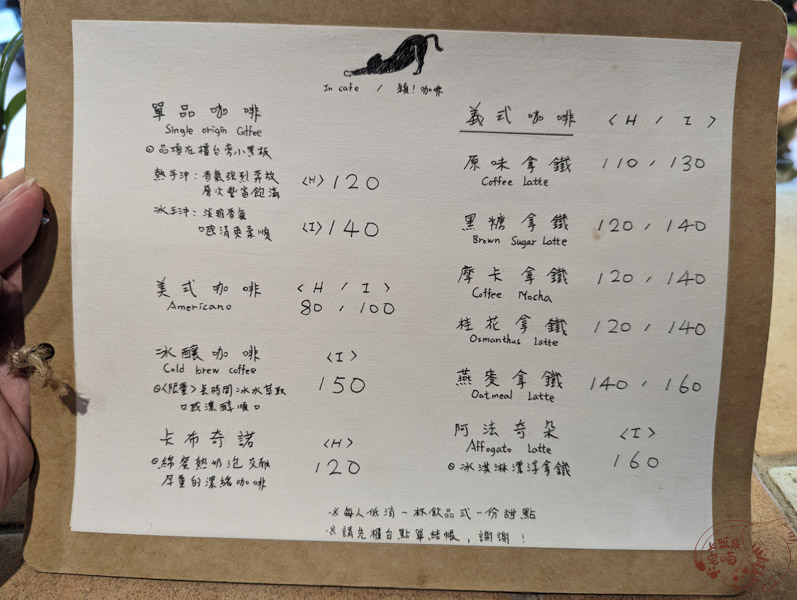 In cafe / 穎！咖啡
單品咖啡
Single origin Coffee
品項在櫃台旁小黑板
熱手沖：香氣強烈奔放
層次豐富飽滿
<H> 120
冰手沖：淡雅香氣
口感清爽柔順
<I> 140
美式咖啡 <H / I>
Americano 80 / 100
冰釀咖啡 <I>
Cold brew coffee
150
<限量>長時間冰水萃取
口感濃醇順口
卡布奇諾 <H>
綿密熱奶泡交融
厚重的濃縮咖啡
120
義式咖啡 <H / I>
原味拿鐵 110 / 130
Coffee Latte
黑糖拿鐵 120 / 140
Brown Sugar Latte
摩卡拿鐵 120 / 140
Coffee Mocha
桂花拿鐵 120 / 140
Osmanthus Latte
燕麥拿鐵 140 / 160
Oatmeal Latte
阿法奇朵 <I>
Affogato Latte
冰淇淋漂浮拿鐵 160
※每人低消一杯飲品或一份甜點
※請先櫃台點單結帳，謝謝！